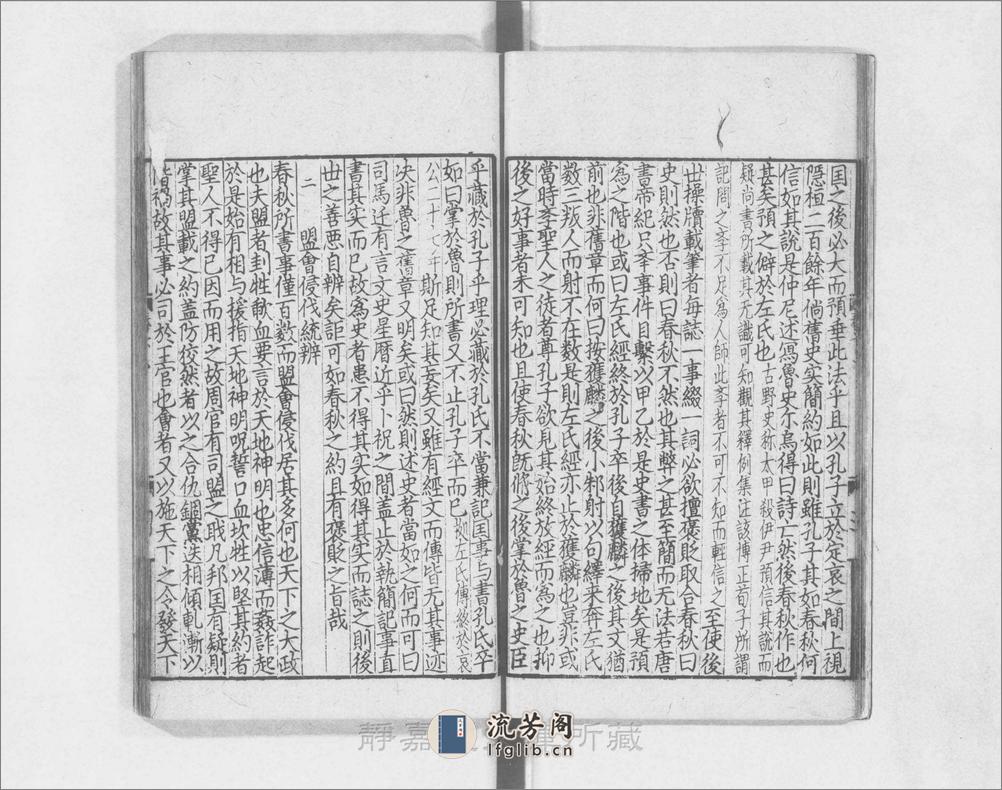 国之後必大而預垂此法乎且以孔子子立於定哀之間上視
隱桓二百餘年倘舊史实簡約如此則雖孔子其如春秋何
信如其說是仲尼述寫魯史尔烏得曰詩亡然後春秋作也
甚矣預之僻於左氏也古野史称太甲殺伊尹預信其說而
疑尚書所載其无識可知觀其釋例集注該博正荀子所謂
記問之李不足為人師此李者不可不知而輕信之至使後
世操牘載筆者每誌一事綴一詞必欲擅褒貶取合春秋曰
史則然也否則曰春秋不然也其弊之甚至簡而无法若唐
書帝紀只举事件目繫以甲乙於是史書之体掃地矣是預
為之階也或曰左氏經終於孔子卒後自獲麟之後其文猶
前也非舊章而何曰按獲麟之後小邾射以句繹來奔左氏
数三叛人而射不在数是則左氏經亦止於獲麟也豈非或
當時李聖人之徒者尊孔子欲見其始終放經而為之也抑
後之好事者未可知也且使春秋旣脩之後掌於魯之史臣
乎藏於孔子乎理必藏於孔氏不當兼記国事与書孔氏卒
如曰掌於魯則所書又不止孔子卒而已拠左氏傳終於哀
公二十七年斯足知其妄矣又雖有經文而傳皆无其事迹
決非魯之舊章又明矣或曰然則述史者當如之何而可曰
司馬迁有言文史星曆近乎卜祝之間盖止於執簡記事直
書其实而已故為史者患不得其实如得其实而誌之則後
世之善悪自辨矣詎可如春秋之約且有褒貶之旨哉
二　盟會侵伐統辨
春秋所書事僅百数而盟會侵伐居其多何也天下之大政
也夫盟者刲牲歃血要言於天地神明也忠信薄而姦詐起
於是始有相与援指天地神明呪誓口血坎牲以堅其約者
聖人不得已因而用之故周官有司盟之職凡邦国有疑則
掌其盟載之約盖防狡然者以之合仇綢黨迭相傾軋漸以
禍故其事必司於王官也會者又以施天下之令發天下
静嘉 所藏
流芳阁
lfglib.cn